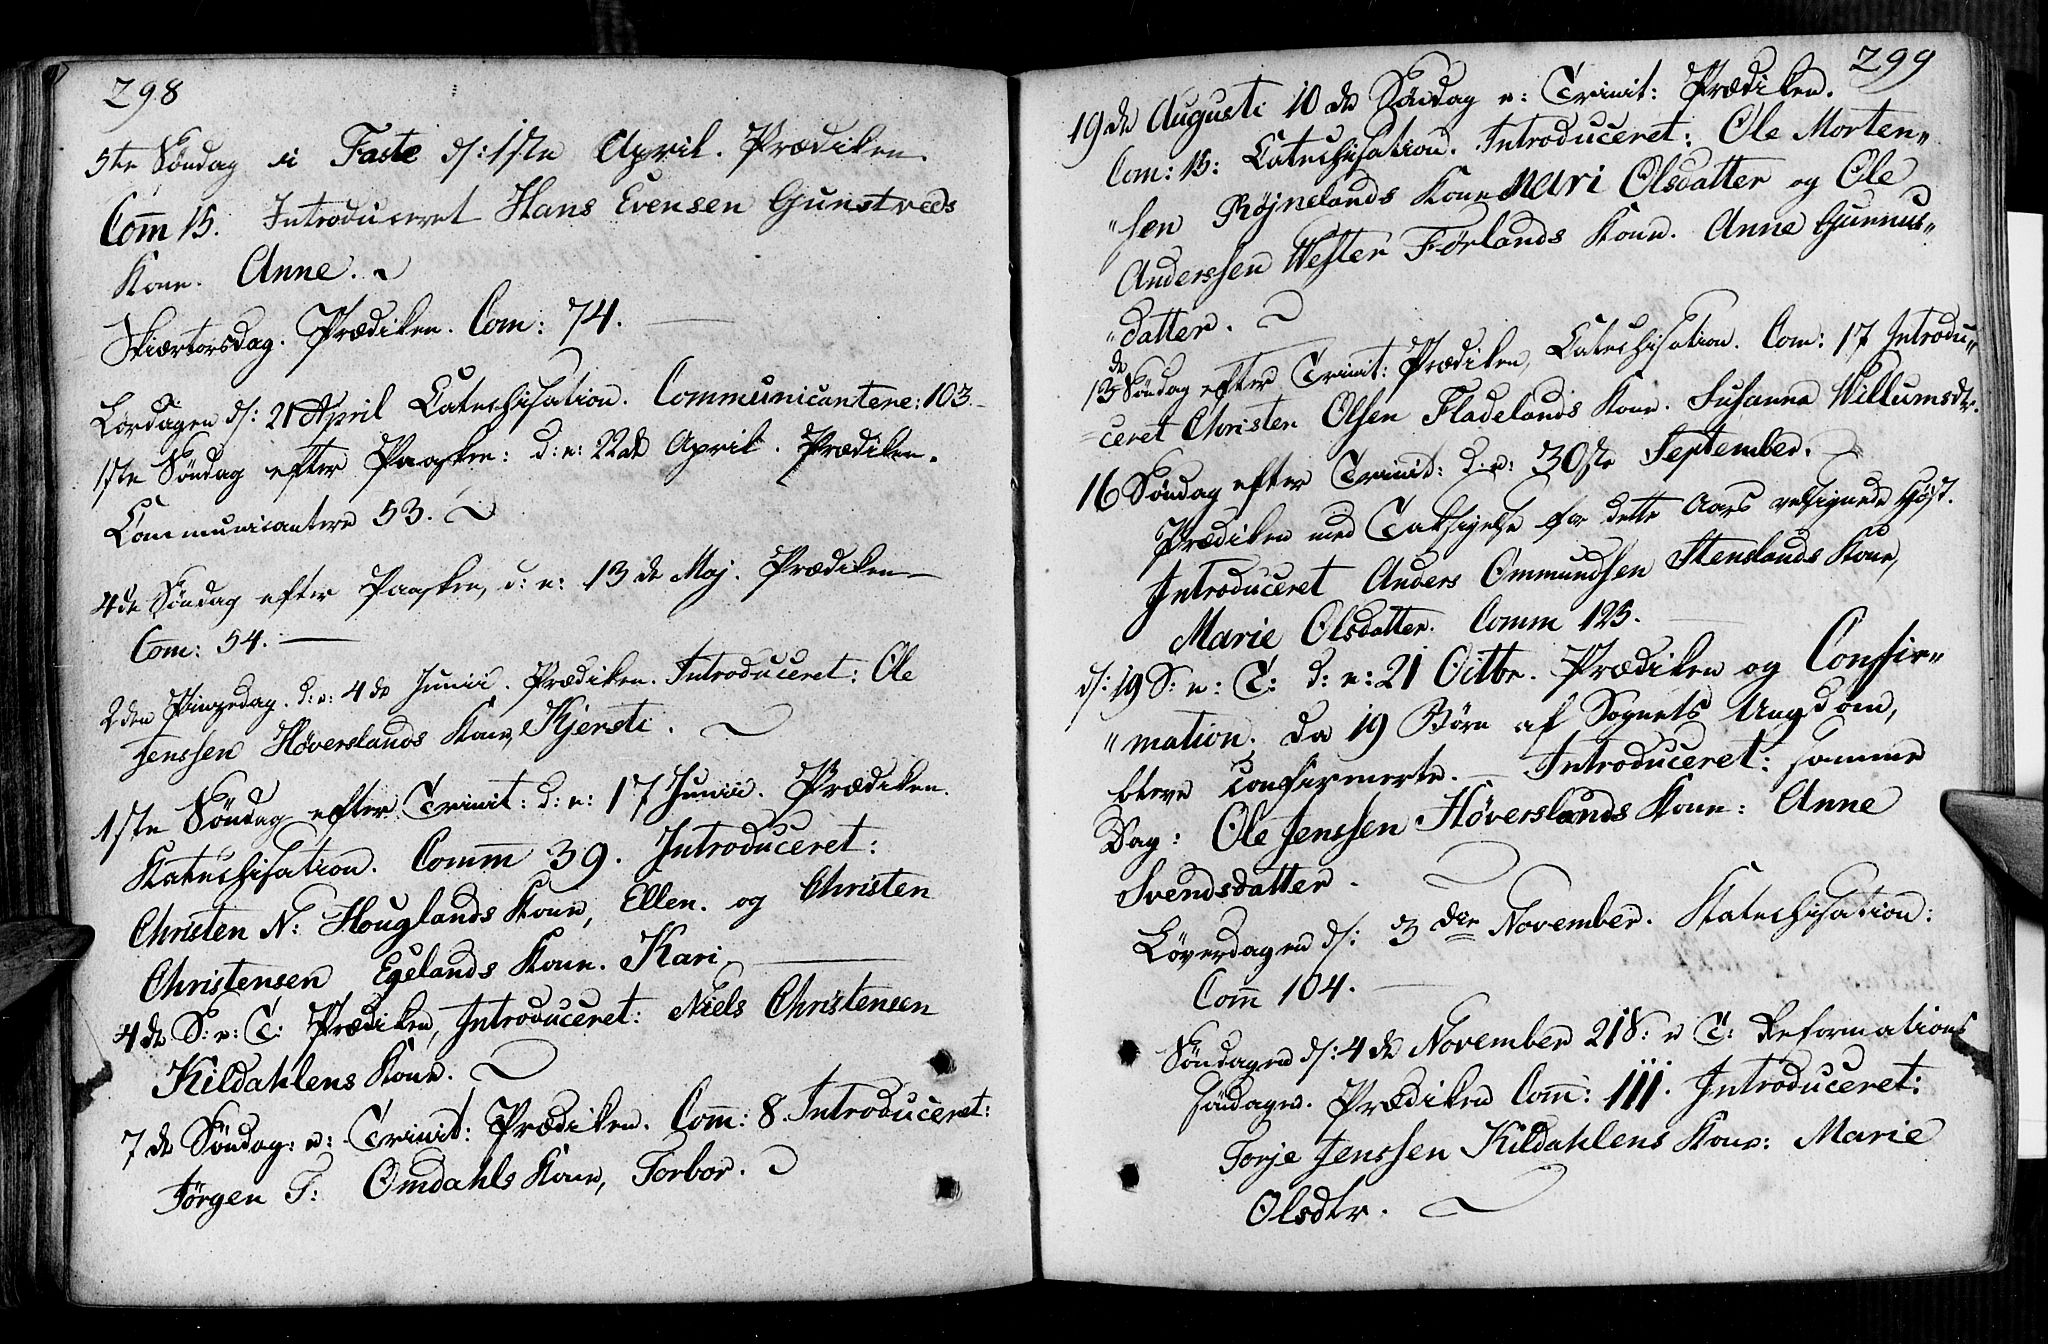 298
5te Søndag i Faste d: 1ste April. Prædiken.
Com̄ 15. Introduceret Hans Evensen Gunstveds
Kone. Anne.
Skiærtorsdag. Prædiken. Com: 74.
Lørdagen d: 21 April Catechisation. Communicantere: 103.
1ste Søndag efter Paasken: d: e: 22de April. Prædiken.
Communicantere 53.
4de Søndag efter Paasken, d: e: 13de Maj. Prædiken
Com: 54.
2den Pinzedag. d: e: 4de Junii, Prædiken. Introduceret: Ole
Jenssen Høverslands Kone, Kjersti.
1ste Søndag efter Trinit: d: e: 17 Junii. Prædiken.
Katechisation. Com̄ 39. Introduceret:
Christen N: Houglands Kone, Ellen. og Christen
Christensen Egelands Kone. Kari.
4de S: e: T: Prædiken, Introduceret: Niels Christensen
Kildahlens Kone.
7de Søndag: e: Trinit: Prædiken. Com̄: 8. Introduceret:
Jörgen T: Omdahls Kone, Torbor.
299
19de Augusti 10de Søndag e: Trinit: Prædiken.
Com: 15: Catechisation. Introduceret: Ole Morten„
„sen Røjnelands Kone Mari Olsdatter og Ole
Anderssen Wester Førlands Kone. Anne Gunnus„
„datter.
13de Søndag efter Trinit: Prædiken, Catechisation. Com: 17 Introdu„
„ceret Christen Olsen Fladelands Kone. Susanna Willumsdtr.
16 Søndag efter Trinit: d: e: 30te September.
Prædiken med Taksigelse for dette Aars velsignede Høst.
Introduceret Anders Ommundsen Stenslands Kone,
Marie Olsdatter. Comm 125.
d: 19 S: e: T: d: e: 21 Octbr. Prædiken og Confir„
„mation. Da 19 Børn af Sognets Ungdom,
bleve confirmerte. Introduceret: samme
Dag: Ole Jenssen Höverslands Kone: Anne
Svendsdatter.
Løverdagen d: 3die November. Katechisation:
Com̄ 104.
Söndagen d: 4de November 21 S: e T: Reformations
Söndagen. Prædiken Com̄: 111. Introduceret:
Torje Jenssen Kildahlens Kone: Marie
Olsdtr.